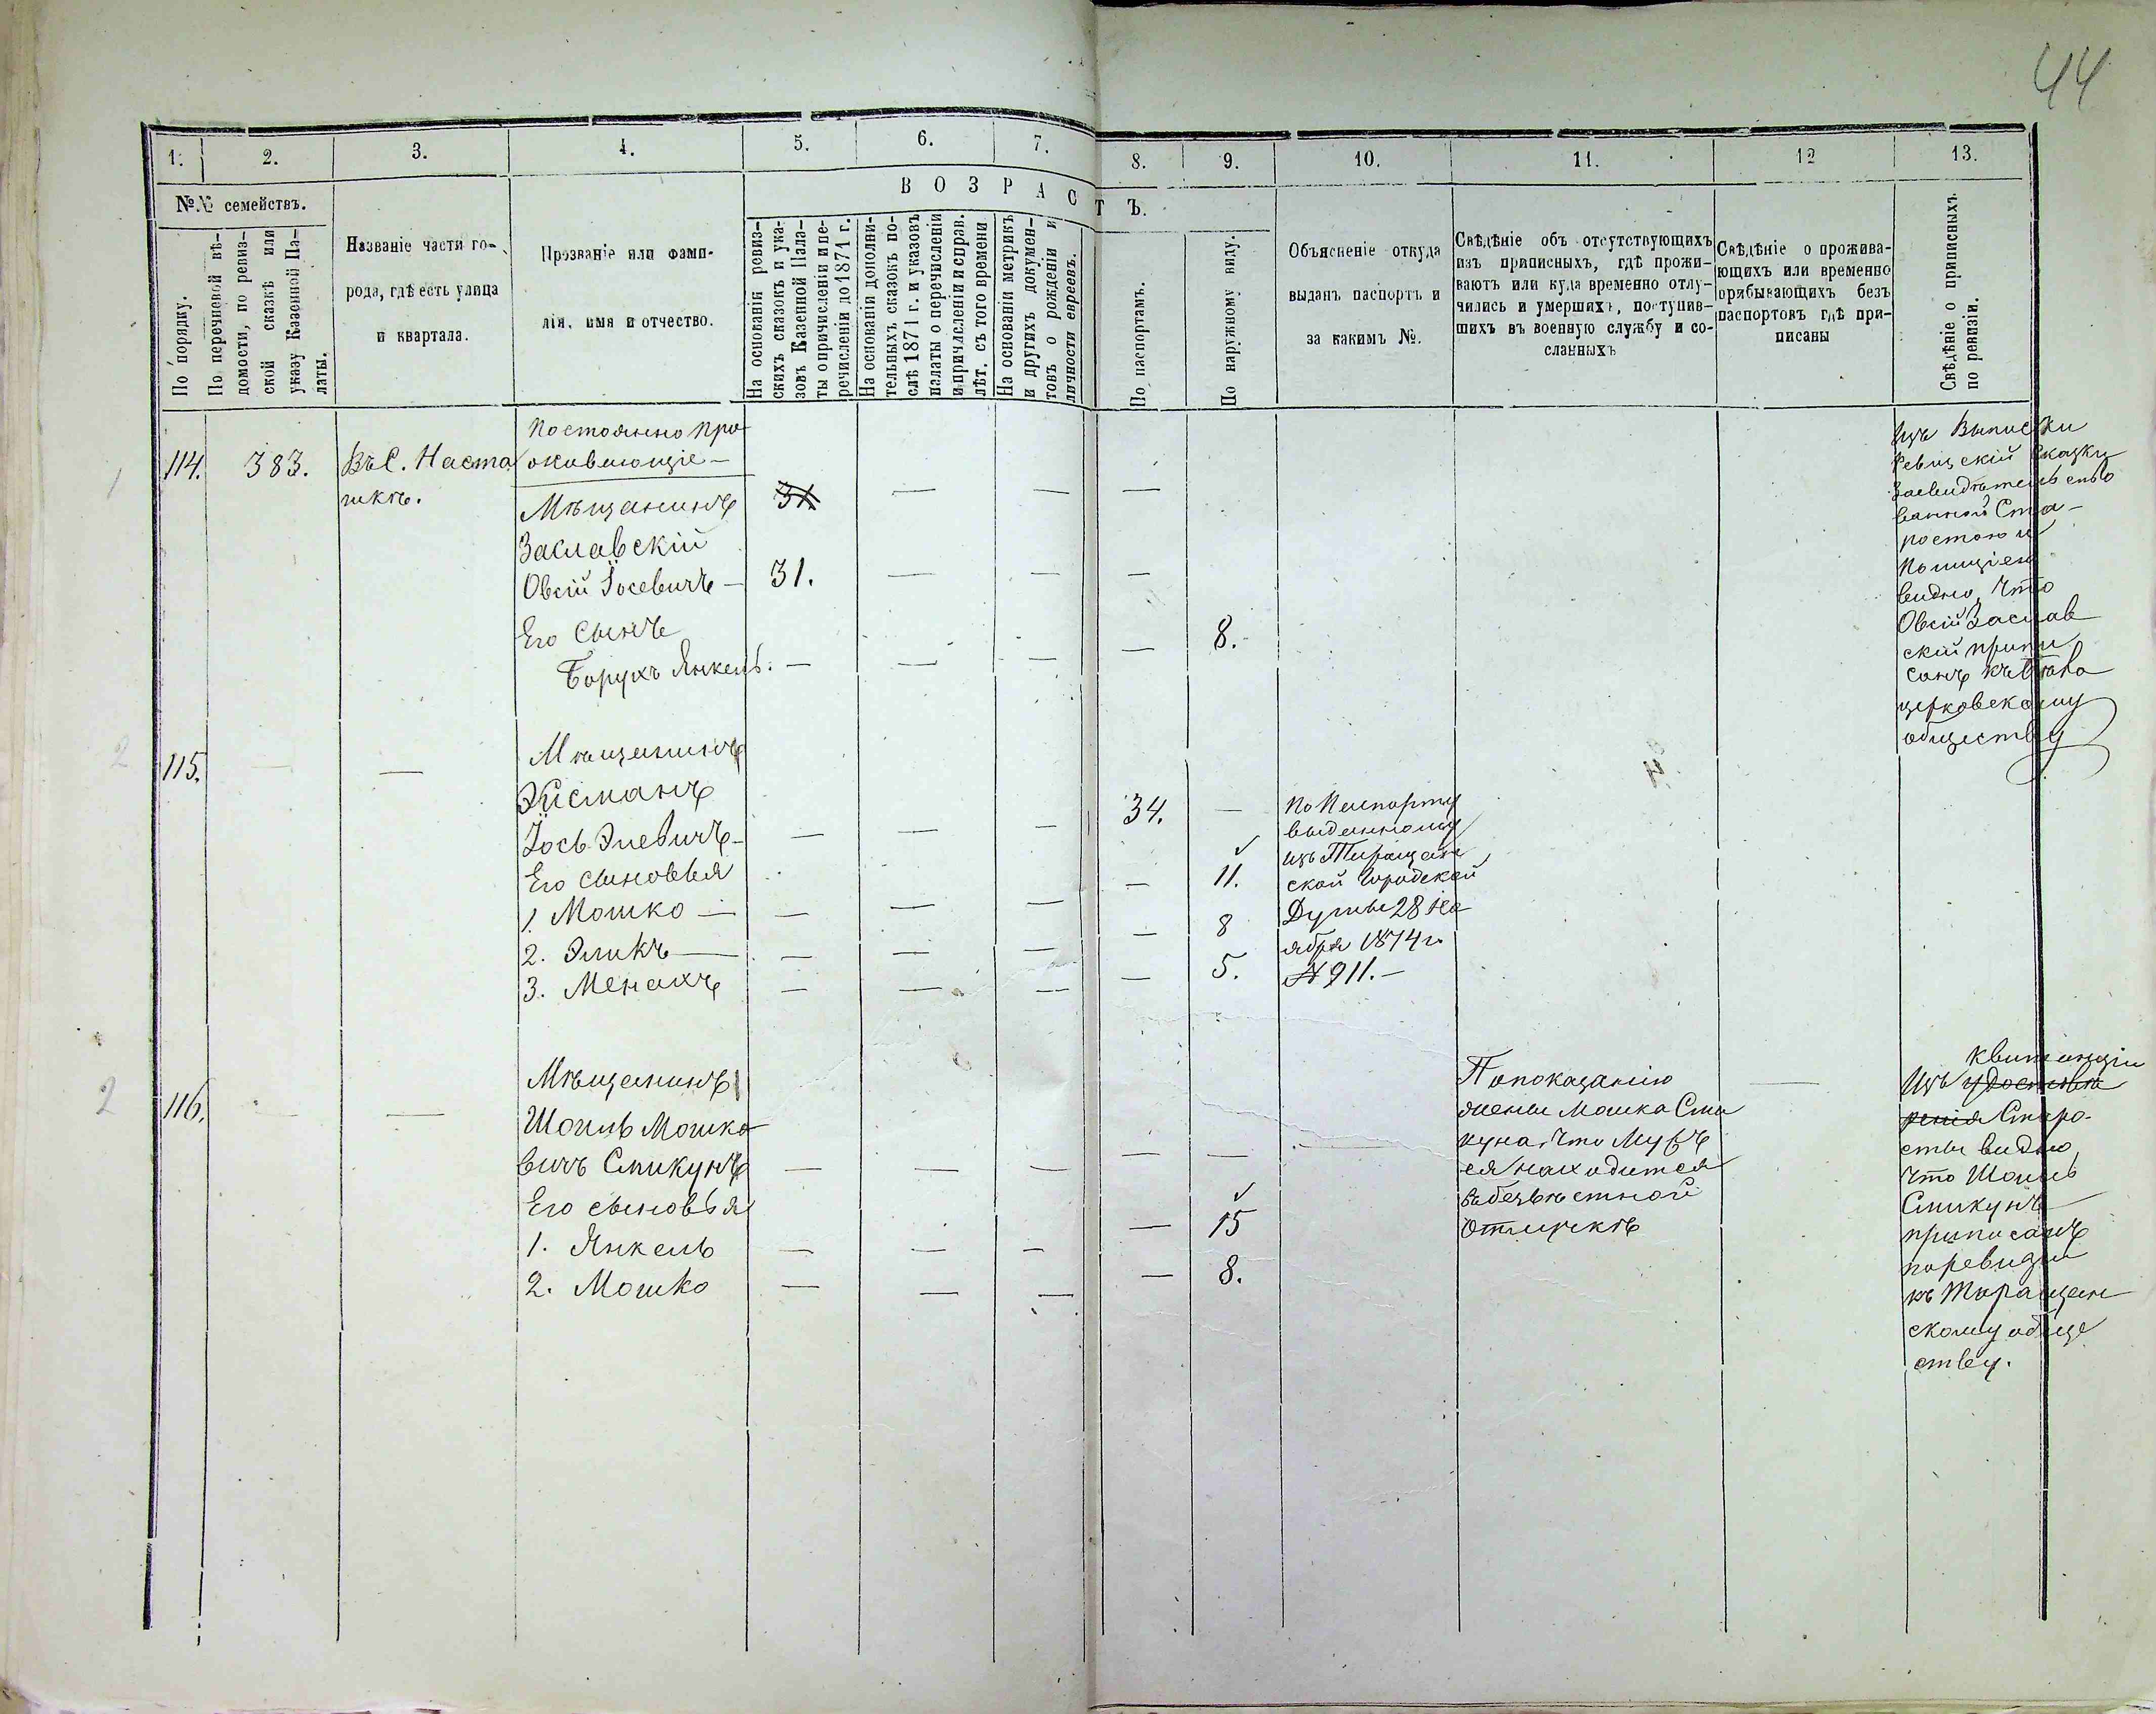 44
1. 2. 3. 4. 5. 6. 7. 8. 9. 10. 11. 12 13.
№№ семействъ.
По порядку.
По перечневой вѣ-
домости, по ревиз-
ской сказкѣ или
указу Казенной Па-
латы.
Названіе части го-
рода, гдѣ есть улица
и квартала.
Прозваніе или фами-
лія, имя и отчество.
ВОЗРАСТЪ.
На основаніи ревиз-
скихъ сказокъ и ука-
зовъ Казенной Пала-
ты о причисленіи и пе-
речисленіи до 1871 г.
На основаніи дополни-
тельныхъ сказокъ по-
слѣ 1871 г. и указовъ
палаты о перечисленіи
и причисленіи и справ.
лѣт. съ того времени
На основаніи метрикъ
и другихъ докумен-
товъ о рожденіи и
личности евреевъ.
По паспортамъ.
По наружному виду.
Объясненіе откуда
выданъ паспортъ и
за какимъ №.
Свѣдѣніе объ отсутствующихъ
изъ приписныхъ, гдѣ прожи-
ваютъ или куда временно отлу-
чились и умершихъ, поступив-
шихъ въ военную службу и со-
сланныхъ
Свѣдѣніе о прожива-
ющихъ или временно
прибывающихъ безъ
паспортовъ гдѣ при-
писаны
Свѣдѣніе о приписныхъ
по ревизіи.
1
114. 383.
Въ С. Наста
шкѣ.
Постоянно про
живающіе —
Мѣщанинъ
Заславскій
Овсій Іосевичъ —
Его сынъ
Борухъ Янкель. —
31 — — —
31. — — —
— — — 8.-
Изъ Выписки
Ревизскій Сказки
Засвидѣтельство
ванной Ста-
ростою и
Полиціею
видно, что
Овсій Заслав
скій припи
санъ къ Бѣло
церковскому
обществу
2
115. — —
Мѣщанинъ
Хисманъ
Іось Элевичъ —
Его сыновья
1. Мошко —
2. Эликъ —
3. Менахъ
— — — 34. —
— — — — 11.
— — — — 8
— — — — 5.
По Паспорту
выданному
изъ Таращан
ской Городской
Думы 28 Но
ября 1874 г.
№ 911.—
2
116. — —
Мѣщанинъ
Шоиль Мошко
вичъ Спикунъ
Его сыновья
1. Янкель
2. Мошко
— — — — —
— — — — 15
— — — — 8.
По показанію
жены Мошка Спи
куна, что Мужъ
ея находится
въ безвѣстной
отлучкѣ
—
квитанціи
Изъ удостовѣ
ренія Старо-
сты видно,
что Шоиль
Спикунъ
приписанъ
по ревизіи
къ Таращан
скому обще
ству.